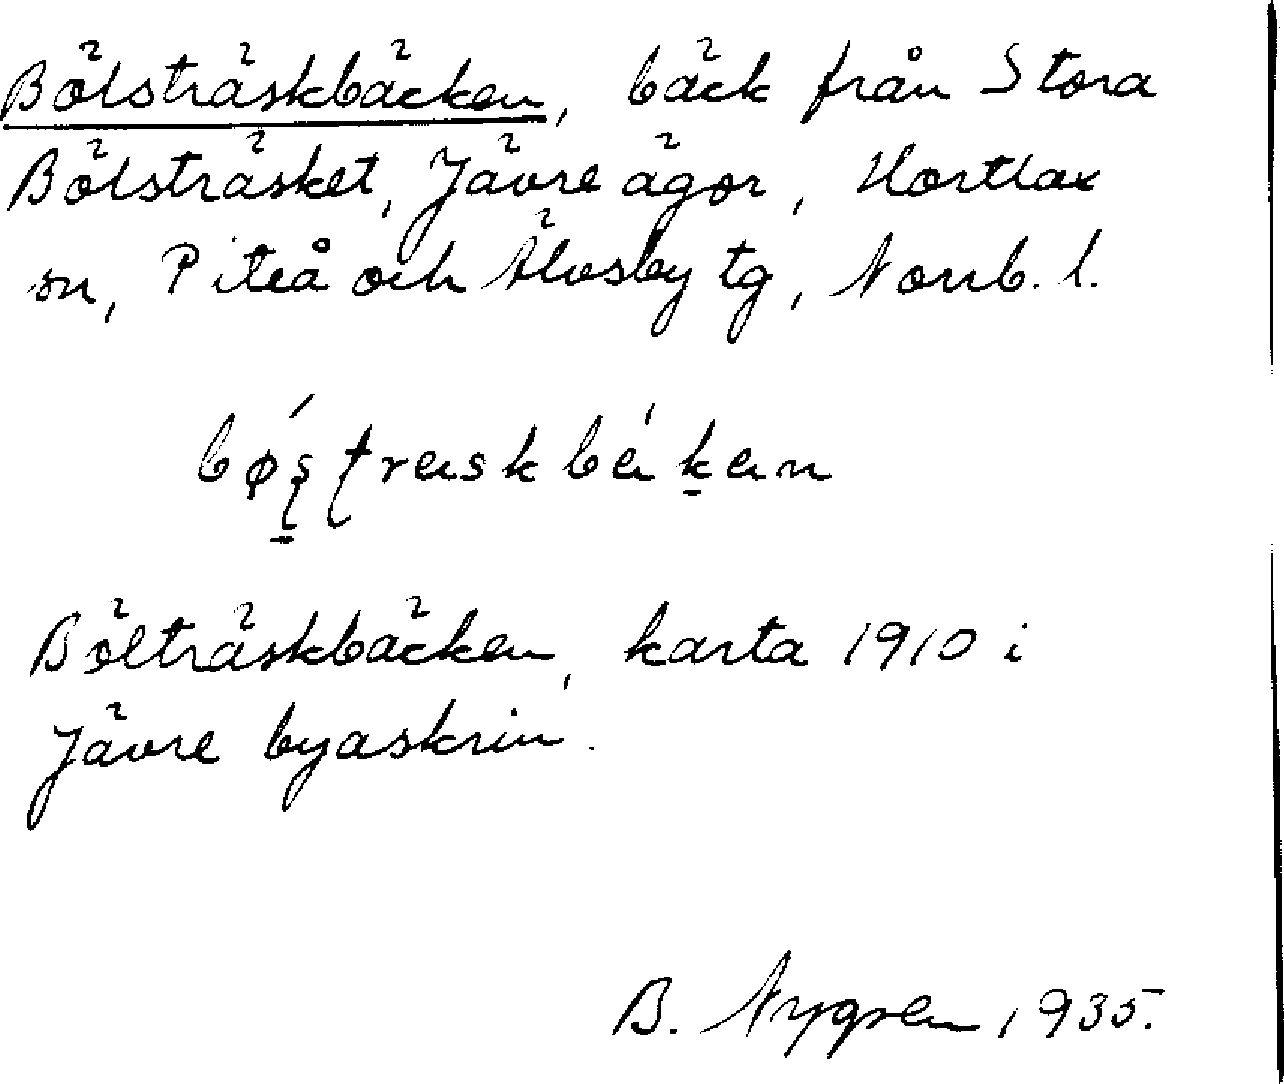 Bölsträskbäcken, bäck från Stora
Bölsträsket, Jävre ägor, Hortlax
sn, Piteå och Älvsby tg, Norrb. l.
Bölträskbäcken, karta 1910 i
Jävre byaskrin.
B. Nygren 1935.